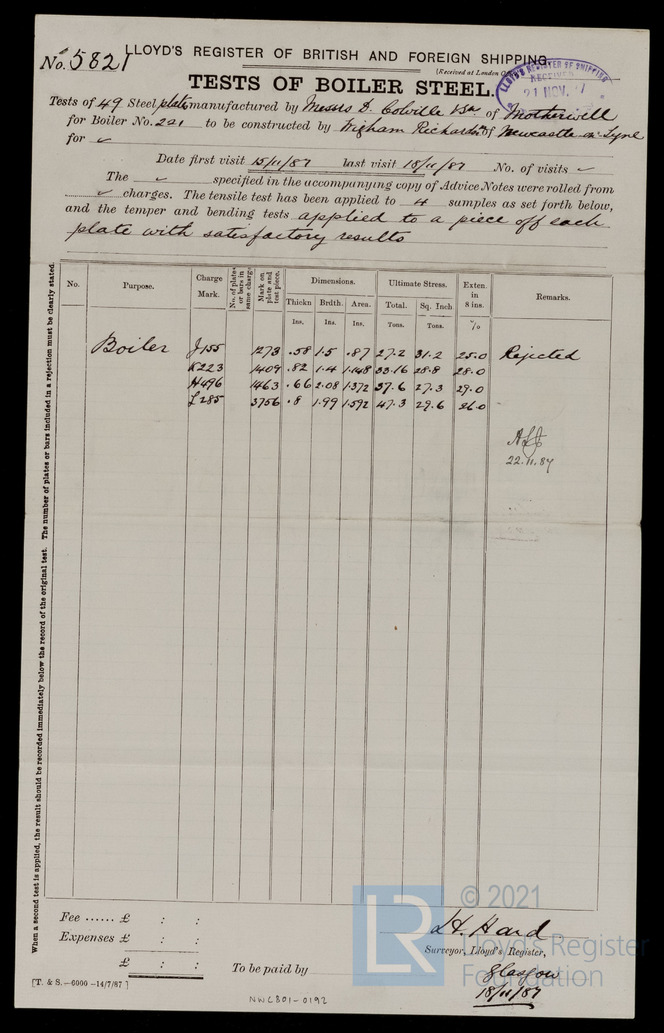 No. 5821 LLOYD'S REGISTER OF BRITISH AND FOREIGN SHIPPING.
(Received at London
LLOYD'S REGISTER OF SHIPPING
RECEIVED
21 NOV.
TESTS OF BOILER STEEL.
Tests of 49 Steel plates manufactured by Messrs D. Colville & Sons of Motherwell
for Boiler No. 221 to be constructed by Wigham Richardson of Newcastle on Tyne
for
Date first visit 15/11/87 last visit 18/11/87 No. of visits
The specified in the accompanying copy of Advice Notes were rolled from
charges. The tensile test has been applied to 4 samples as set forth below,
and the temper and bending tests applied to a piece off each
plate with satisfactory results
When a second test is applied, the result should be recorded immediately below the record of the original test. The number of plates or bars included in a rejection must be clearly stated.
No. Purpose. Charge Mark. No. of plates or bars in same charge Mark on plate and test piece. Dimensions. Ultimate Stress. Exten. in 8 ins. Remarks.
Thickn Brdth. Area. Total. Sq. Inch
Ins. Ins. Ins. Tons. Tons. %
Boiler J155 1273 .58 1.5 .87 27.2 31.2 25.0 Rejected
K223 1409 .82 1.4 1.148 33.16 28.8 28.0
H496 1463 .66 2.08 1.372 37.6 27.3 29.0
L285 3756 .8 1.99 1.592 47.3 29.6 26.0
22.11.87
Fee ...... £ : :
Expenses £ : :
£ : :
To be paid by
H. Hand
Surveyor, Lloyd's Register,
Glasgow
18/11/87
[T. & S.—6000—14/7/87]
NWC801-0192
LR © 2021
Lloyd's Register
Foundation